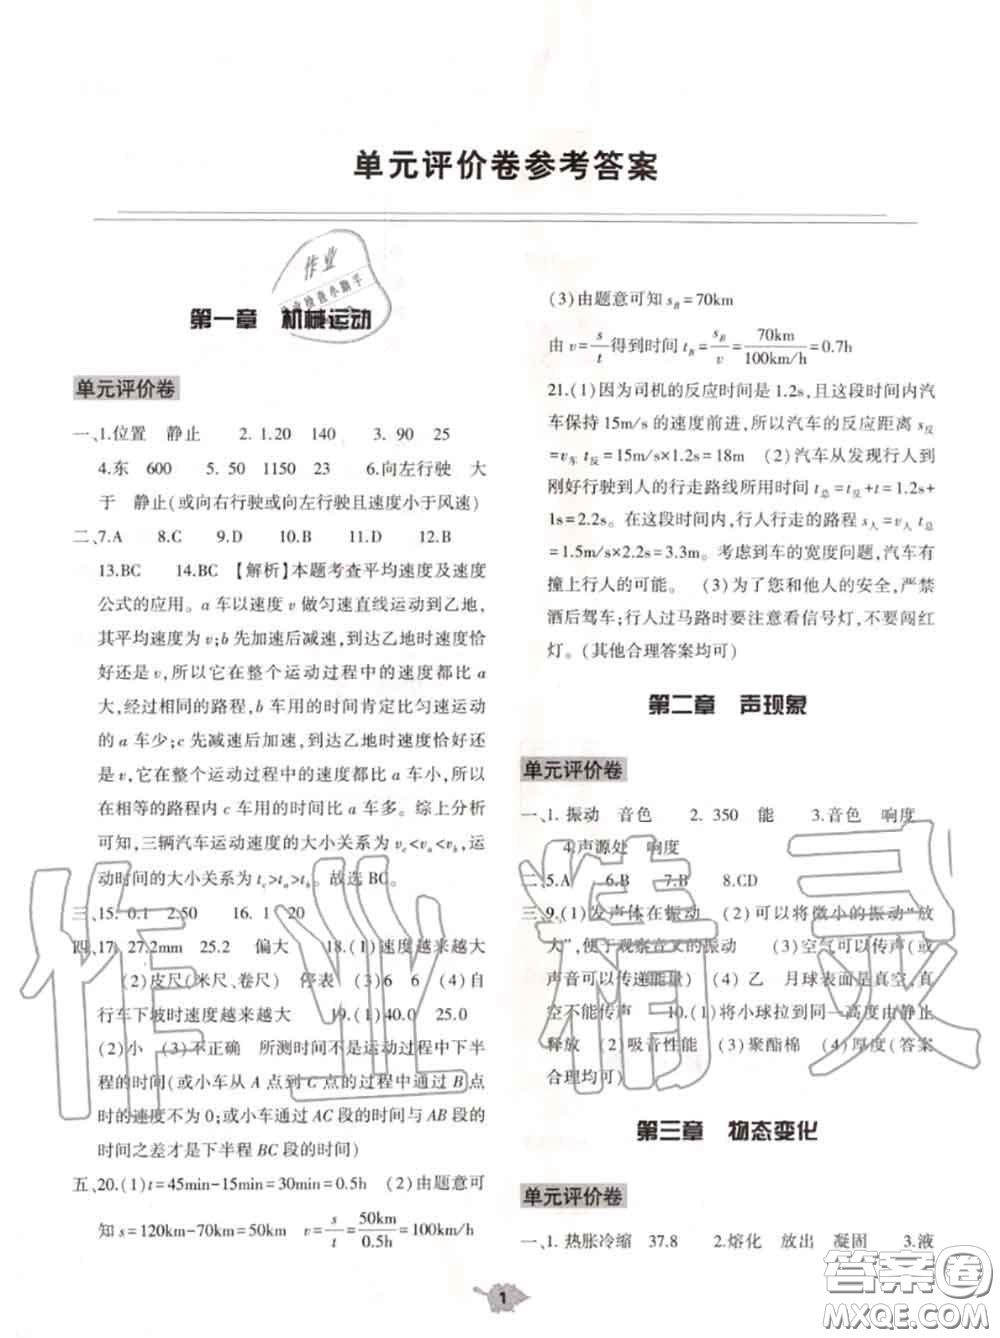 单元评价卷参考答案
作业
检查小助手
第一章 机械运动
单元评价卷
一、1.位置 静止 2. 1.20 140 3. 90 25
4.东 600 5. 50 1150 23 6.向左行驶 大
于 静止(或向右行驶或向左行驶且速度小于风速)
二、7.A 8.C 9.D 10.B 11.D 12.B
13.BC 14.BC 【解析】本题考查平均速度及速度
公式的应用。a 车以速度 v 做匀速直线运动到乙地,
其平均速度为 v;b 先加速后减速,到达乙地时速度恰
好还是 v,所以它在整个运动过程中的速度都比 a
大,经过相同的路程,b 车用的时间肯定比匀速运动
的 a 车少;c 先减速后加速,到达乙地时速度恰好还
是 v,它在整个运动过程中的速度都比 a 车小,所以
在相等的路程内 c 车用的时间比 a 车多。综上分析
可知,三辆汽车运动速度的大小关系为 vc<va<vb,运
动时间的大小关系为 tc>ta>tb。故选 BC。
三、15. 0.1 2.50 16. 1 20
四、17. 27.2mm 25.2 偏大 18.(1)速度越来越大
(2)皮尺(米尺、卷尺) 停表 (3)6 6 (4)自
行车下坡时速度越来越大 19.(1)40.0 25.0
(2)小 (3)不正确 所测时间不是运动过程中下半
程的时间(或小车从 A 点到 C 点的过程中通过 B 点
时的速度不为 0;或小车通过 AC 段的时间与 AB 段的
时间之差才是下半程 BC 段的时间)
五、20.(1)t=45min-15min=30min=0.5h (2)由题意可
知 s=120km-70km=50km v=s/t=50km/0.5h=100km/h
(3)由题意可知 sB=70km
由 v=s/t得到时间 tB=sB/v=70km/100km/h=0.7h
21.(1)因为司机的反应时间是 1.2s,且这段时间内汽
车保持 15m/s 的速度前进,所以汽车的反应距离 s反
=v车 t反=15m/s×1.2s=18m (2)汽车从发现行人到
刚好行驶到人的行走路线所用时间 t总=t反+t=1.2s+
1s=2.2s。在这段时间内,行人行走的路程 s人=v人 t总
=1.5m/s×2.2s=3.3m。考虑到车的宽度问题,汽车有
撞上行人的可能。 (3)为了您和他人的安全,严禁
酒后驾车;行人过马路时要注意看信号灯,不要闯红
灯。(其他合理答案均可)
第二章 声现象
单元评价卷
一、1. 振动 音色 2. 350 能 3.音色 响度
4.声源处 响度
二、5.A 6.B 7.B 8.CD
三、9.(1)发声体在振动 (2)可以将微小的振动“放
大”,便于观察音叉的振动 (3)空气可以传声(或
声音可以传递能量) (4)乙 月球表面是真空,真
空不能传声 10.(1)将小球拉到同一高度由静止
释放 (2)吸音性能 (3)聚酯棉 (4)厚度(答案
合理均可)
第三章 物态变化
单元评价卷
一、1. 热胀冷缩 37.8 2.熔化 放出 凝固 3.液
1
作业精灵
答案圈
MXQE.COM